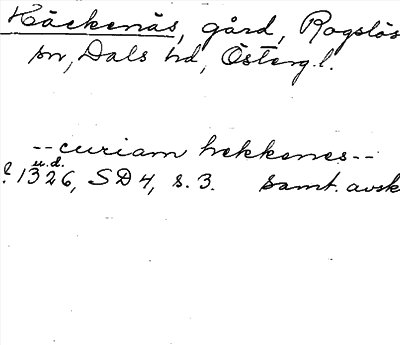 Häckenäs, gård, Rogslös
sn, Dals hd, Österg.l.
--curiam hekkenes--
u.d.
? 1326, SD 4, s. 3. samt. avsk